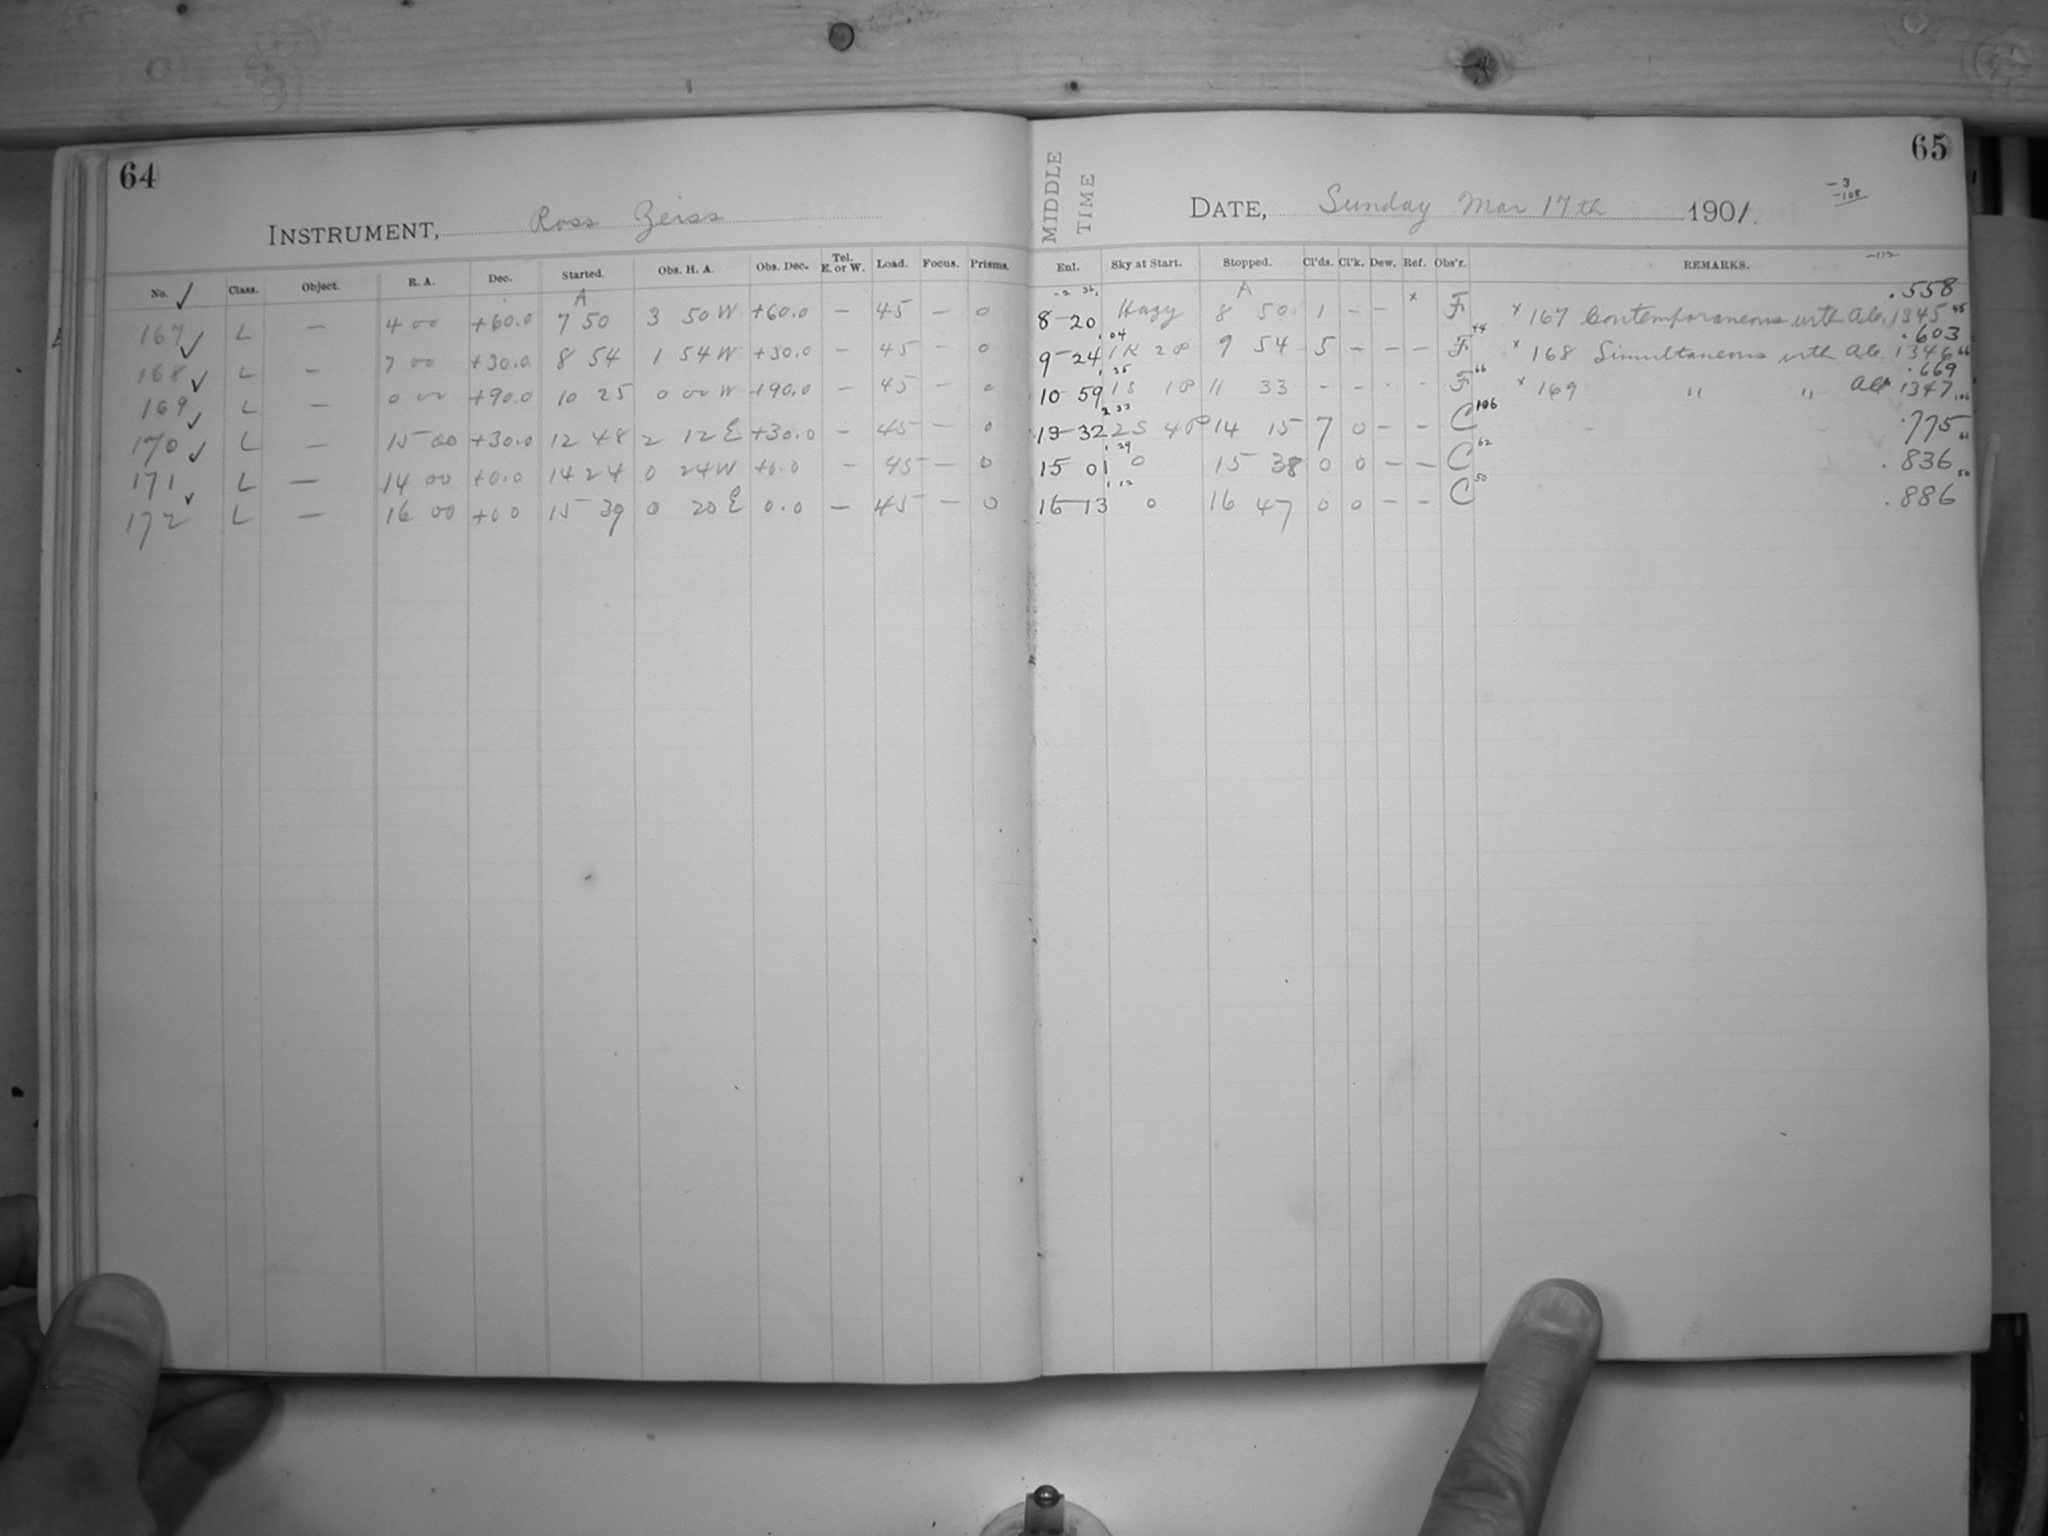 64
INSTRUMENT, Ross Zeiss
No. ✓ Class. Object. R. A. Dec. Started. Obs. H. A. Obs. Dec. Tel. E. or W. Load. Focus. Prisms.
A
167 ✓ L — 4 00 +60.0 7 50 3 50 W +60.0 — 45 — 0
168 ✓ L — 7 00 +30.0 8 54 1 54 W +30.0 — 45 — 0
169 ✓ L — 0 00 +90.0 10 25 0 00 W +90.0 — 45 — 0
170 ✓ L — 15 00 +30.0 12 48 2 12 E +30.0 — 45 — 0
171 L — 14 00 +0.0 14 24 0 24 W +0.0 — 45 — 0
172 L — 16 00 +0.0 15 39 0 20 E 0.0 — 45 — 0
65
MIDDLE TIME
DATE, Sunday Mar 17th 1901.
-3
-108
-112
Enl. Sky at Start. Stopped. Cl'ds. Cl'k. Dew. Ref. Obs'r. REMARKS.
A
.558
8-20 Hazy 8 50 1 — — x F x 167 Contemporaneous with AC. 1345 45
1 04 44 .603
9-24 1K 2P 9 54 5 — — — F x 168 Simultaneous with AC. 1346 66
1 35 66 .669
10 59 1S 1P 11 33 - - - - F x 169 " " AC 1347 106
2 33 106
13-32 2S 4P 14 15 7 0 — — C .775 61
1 29 62
15 01 0 15 38 0 0 — — C .836 50
1 12 50
16-13 0 16 47 0 0 — — C .886